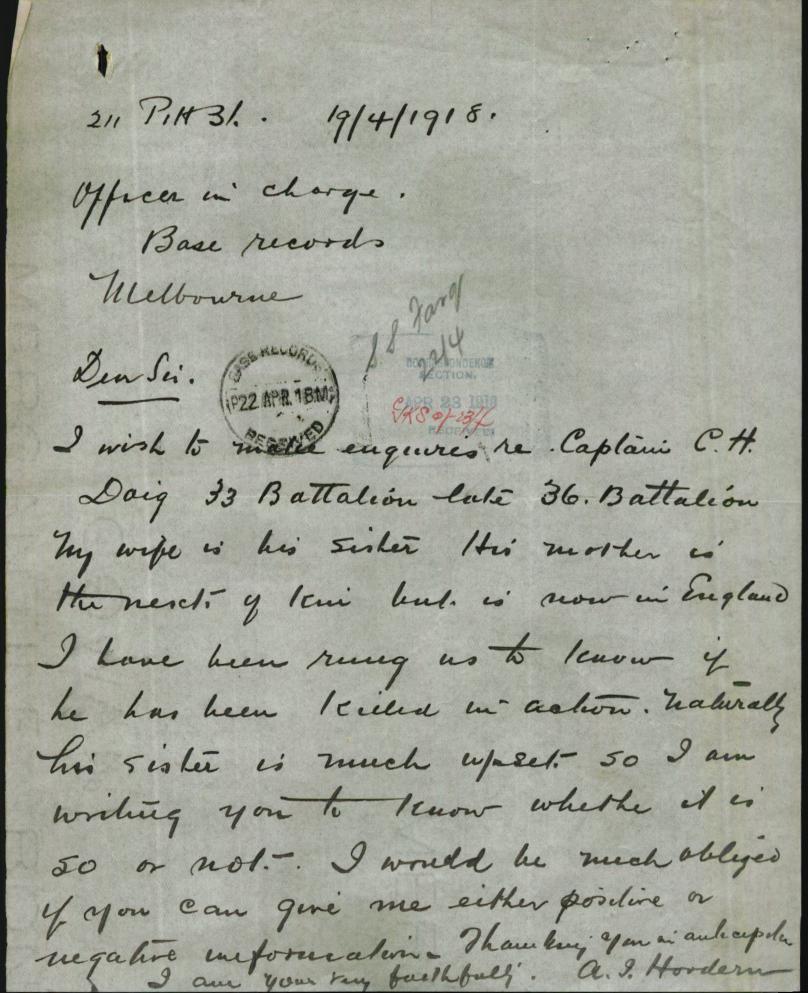 211 Pitt St. 19/4/1918.
Officer in charge.
Base records
Melbourne
Dear Sir.
BASE RECORDS
P22 APR. 18M
RECEIVED
22/4
CORRESPONDENCE
SECTION.
APR 23 1918
RECEIVED
I wish to make enquiries re. Captain C. H.
Doig 33 Battalion late 36. Battalion
My wife is his sister His mother is
the next of kin but is now in England
I have been rung us to know if
he has been killed in action. Naturally
his sister is much upset so I am
writing you to know whethe it is
so or not. I would be much obliged
if you can give me either positive or
negative information. Thanking you in anticipation
I am your very faithfully. A. I. Hordern